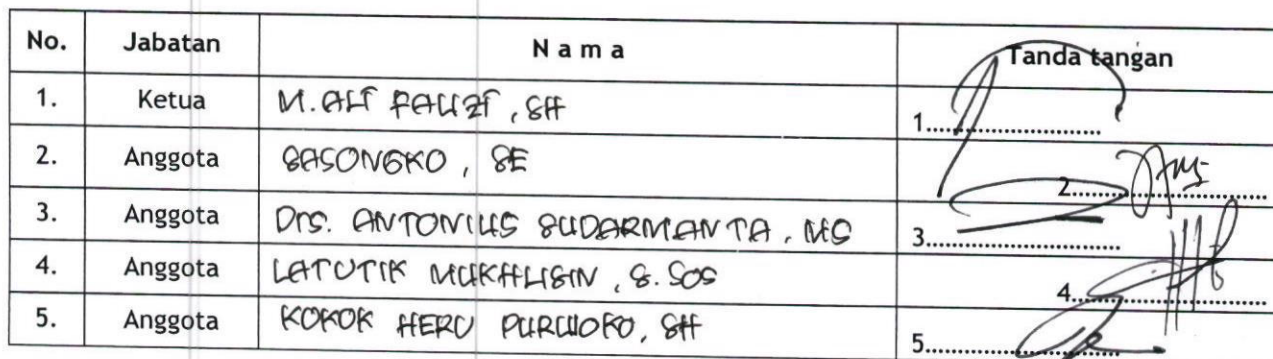 No. Jabatan N a m a Tanda tangan
1. Ketua M. ALI FAUZI, SH 1..............................
2. Anggota SASONGKO, SE 2..............................
3. Anggota Drs. ANTONIUS SUDARMANTA, MS 3..............................
4. Anggota LATUTIK MUKHLISIN, S.Sos 4..............................
5. Anggota KOKOK HERU PURWOKO, SH 5..............................